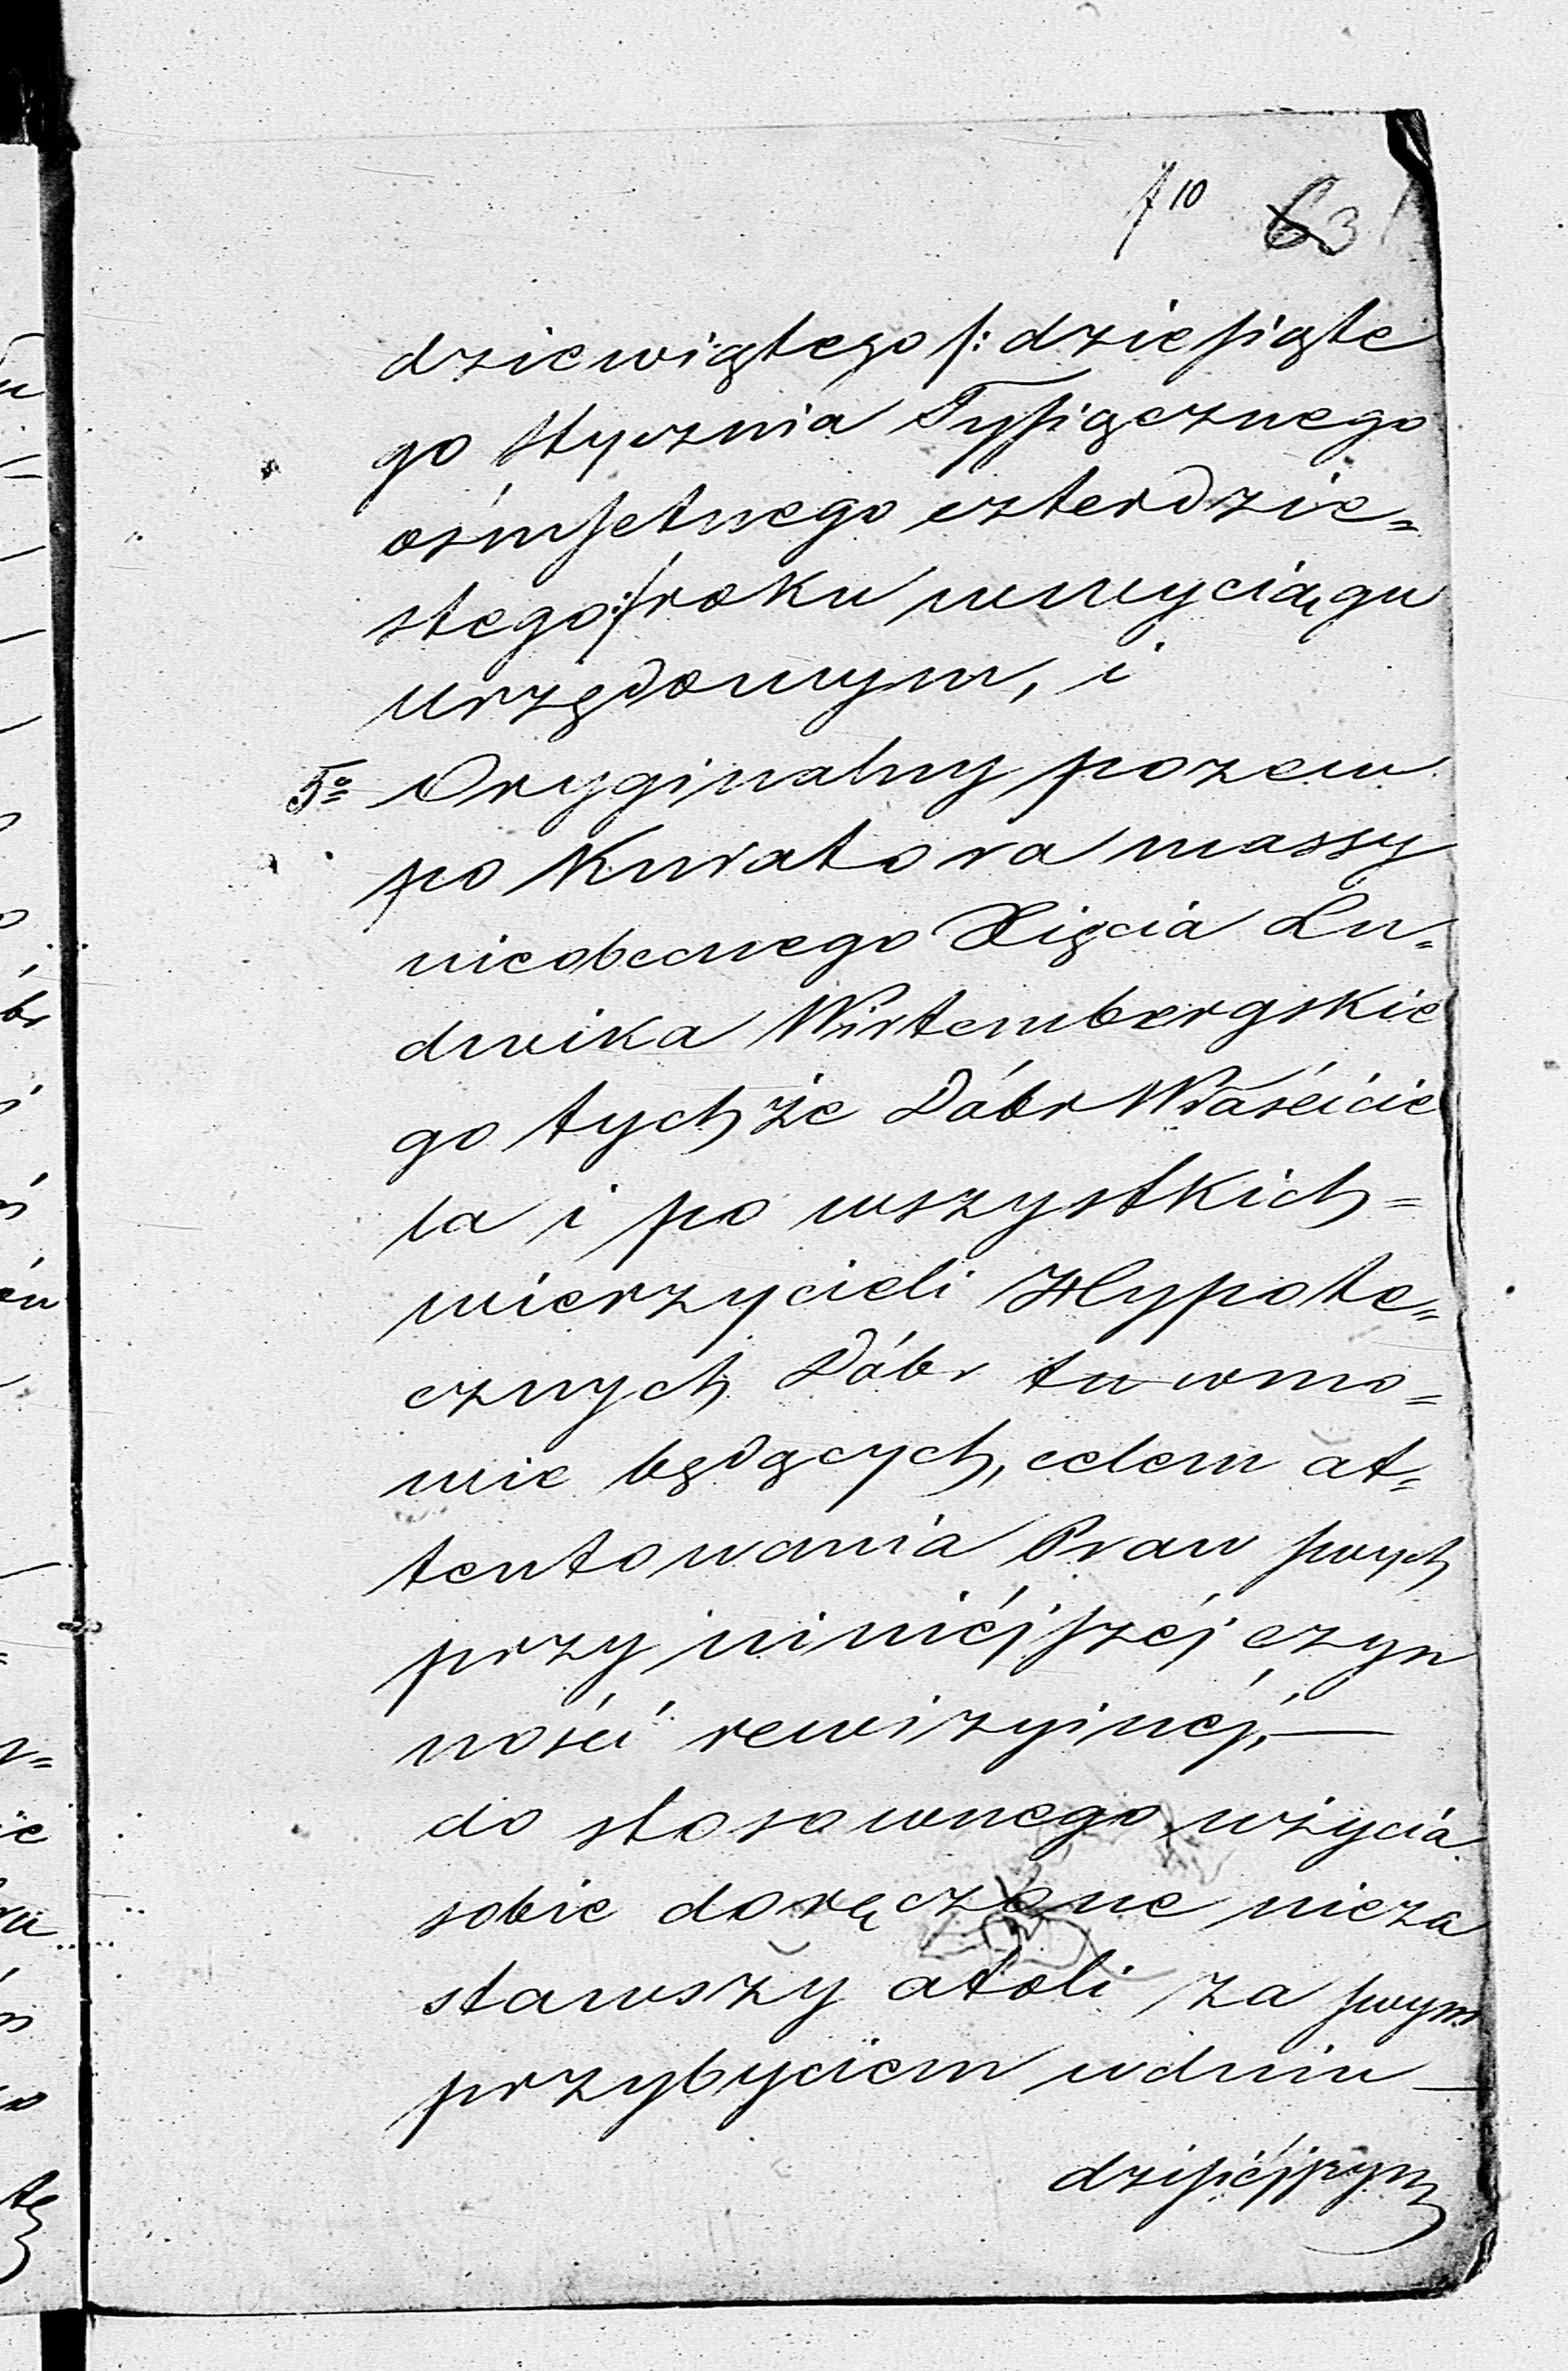 f 10 63
dziewiątego /: dziesiąte
go Stycznia Tysiącznego
ośmsetnego czterdzie=
stego :/ roku w wyciągu
urzędowym, i
5º Oryginalny pozew
po Kuratora massy
nieobecnego Xięcia Lu=
dwika Wirtembergskie
go tychże Dóbr Właścicie
la i po wszystkich=
wierzycieli Hypote=
cznych Dóbr tu w mo=
wie będących, celem at=
tentowania Praw swych
przy niniéjszéj czyn
ności rewizyinéj, —
do stosownego użycia
sobie doręczone nieza
stawszy atoli za swym
przybyciem w dniu —
dzisiéjszym